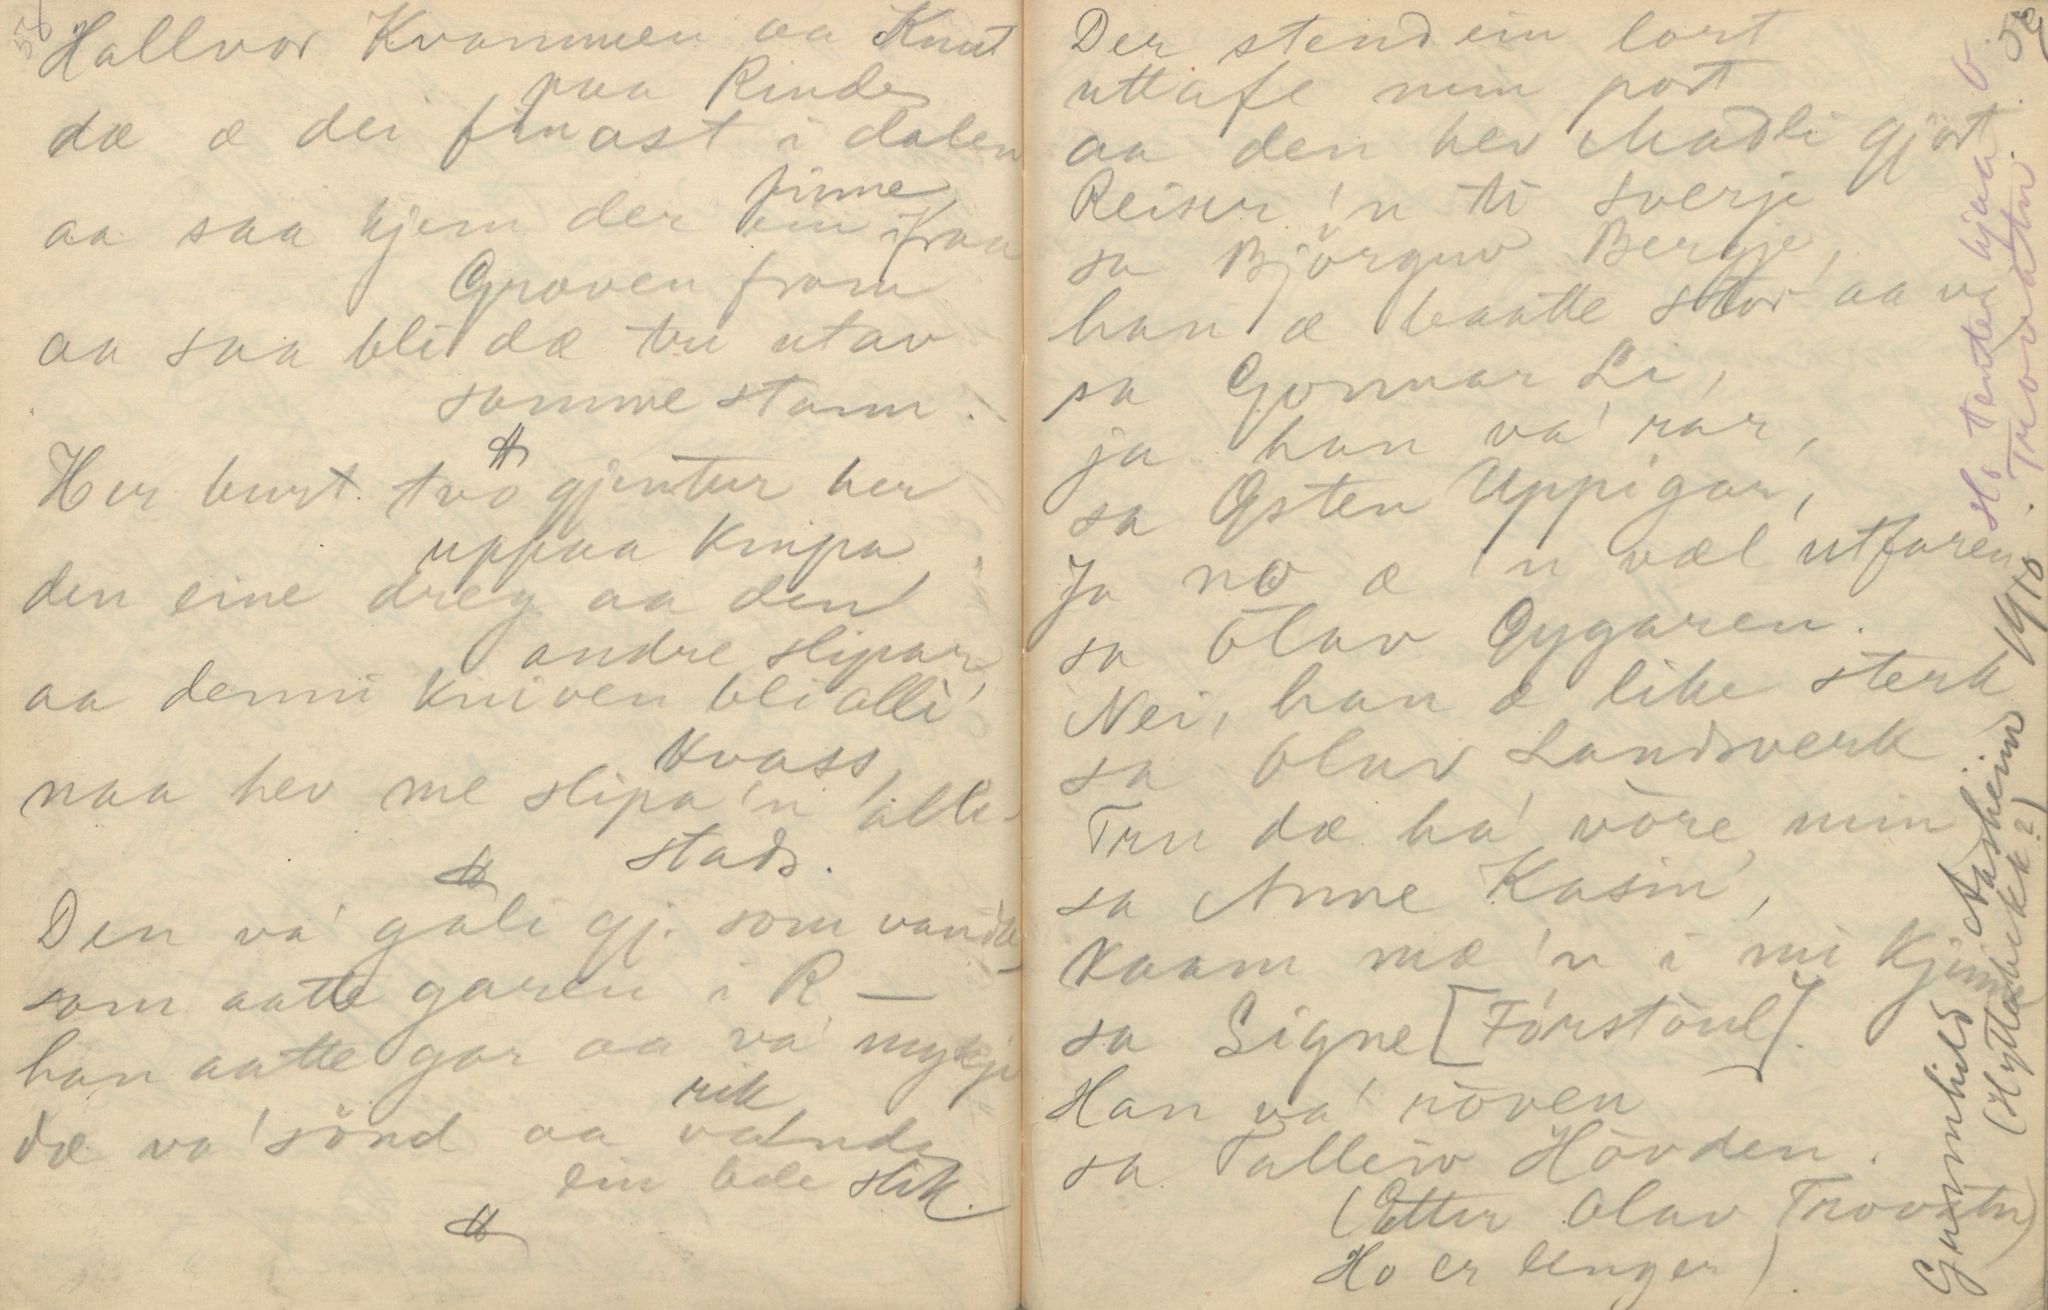 56
Hallvor Kvammen aa Knut
paa Rinde
dæ æ dei finast i dalen
aa saa kjem der ein finne ifraa
Groven fram
aa saa bli dæ tri utav
samme stam.
Her burt tvo gjentur her
uppaa Knipa
den eine dreg aa den
andre slipar,
aa denni kniven bli alli
kvass,
naa hev me slipa 'n alle-
stads.
Den va' gali gj. som vanda
som aatte garen i R —
han aatte gar aa va' mykje
rik
dæ va' sönd aa vanda
ein bele slik.
Der stend ein lort
uttafe min port
aa den hev Madli gjort
Reiser 'n ti Sverje
sa Björguv Bergje,
han æ baatte stor aa
sa Gonnar Li,
ja han va' rar,
sa Östen Uppigar,
Ja no æ 'n væl utfaren
sa Olav Gygaren.
Nei, han æ like sterk
sa Olav Landsverk
Tru dæ ha' vöre min
sa Anne Kasin',
kaam mæ 'n i mi kjinn
sa Signe [Förstöul].
Han va' röven
sa Talleiv Hövden.
(Etter Olav Trovatn)
Ho er lenger).
Ho tente hjaa O.
Trovatn.
Gunnhild Aasheim 1910
(Hyttebekk?)